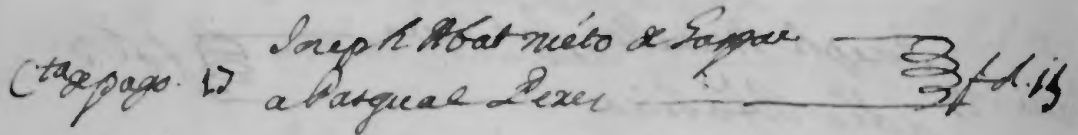 Joseph Abat nieto de Gaspar
Cta de pago. 17 a Pasqual Perez fd.